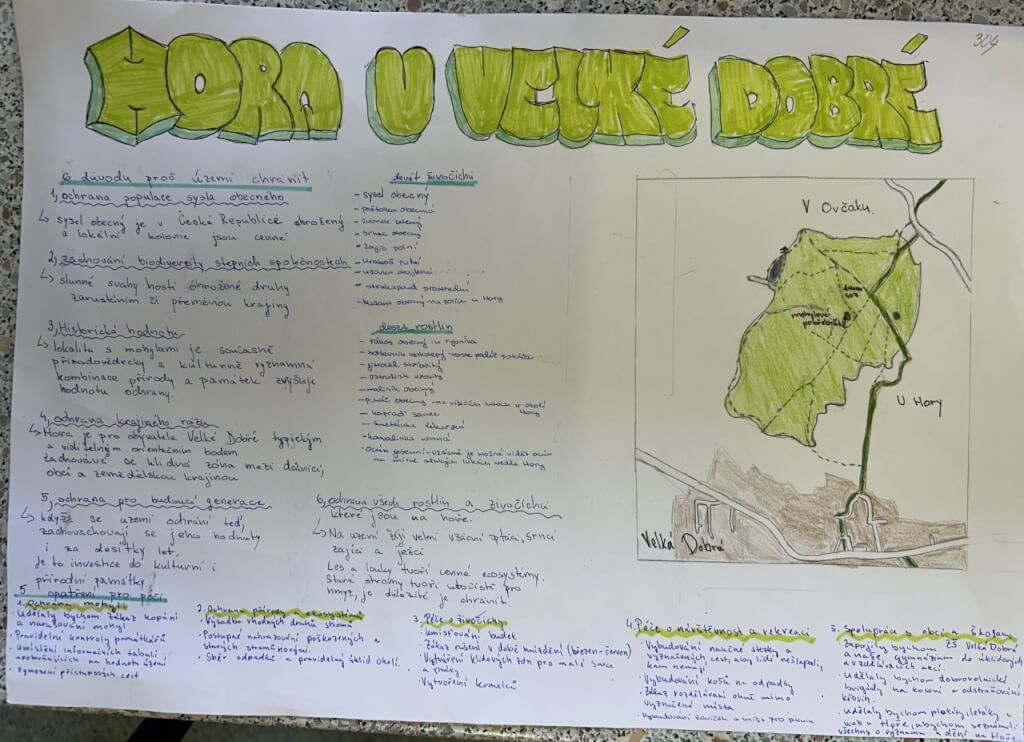 HORA U VELKÉ DOBRÉ
304
6 důvodu proč území chránit
1, ochrana populace sysla obecného
↳ sysel obecný je v České Republice ohrožený
a lokální kolonie jsou cenné
2, zachování biodiverzity stepních společnostech
↳ slunné svahy hostí ohrožené druhy
zarustáním či přeměnou krajiny
3, Historická hodnota
↳ lokalita s mohylami je současně
přírodovědecky a kulturně významná
kombinace přírody a památek zvyšuje
hodnotu ochrany.
4, ochrana krajního rázu
↳ Hora je pro obyvatele Velké Dobré typickým
a viditelným orientačním bodem
zachovává se klidná zóna mezi dálnicí,
obcí a zemědělskou krajinou
5, ochrana pro budoucí generace
↳ když se uzemí ochrání teď,
zachovachovají se jeho hodnoty
i za desítky let.
Je to investice do kulturní i
přírodní památky
6, ochrana všech rostlin a živočichů
které jsou na hoře.
↳ Na uzemí žijí velmi vzácní ptáci, srnci
zajíci a ježci
Les a louky tvoří cenné ekosystémy.
Staré stromy tvoří útočiště pro
hmyz, je důležité je chránit
devět živočichů
- sysel obecný
- poštolka obecná
- zvonek zelený
- srnec obecný
- zajíc polní
- strakapoud prostřední
- bažant obecný na poli u Hory
deset rostlin
- rákos obecný - u rybníka
- maliník obecný
- kapraď samec
V Ovčáku
mohylové pohřebiště
U Hory
Velká Dobrá
5 opatření pro péči
1. Ochrana mohyl
· Udělaly bychom zákaz kopání
a narušování mohyl
· Pravidelné kontroly památkářů
· Umístění informačních tabulí
upozorňujících na hodnotu území
Vymezení přístupových cest
2. Ochrana přírody a ekosystému
· Výsadba vhodných druhů stromů
· Postupné nahrazování poškozených a
starých stromů novými.
· Sběr odpadků a pravidelný úklid okolí
3. Péče o živočichy
· Umisťování budek
· Zákaz rušení v době hnízdění (březen-červen)
· Vytváření klidových zón pro malé savce
a ptáky
· Vytvoření krmelců
4. Péče o návštěvnost a rekreaci
· Vybudování naučné stezky a
vyznačených cest, aby lidé nešlapali,
kam nemají
· Vybudování košů na odpadky
· Zákaz rozdělávání ohně mimo
vyznačená místa
· Vybudování laviček a míst pro piknik
5. Spolupráce s obcí a školami
· Zapojily bychom ZŠ Velká Dobrá
a naše gymnázium do úklidových
a vzdělávacích akcí.
· Udělaly bychom dobrovolnické
brigády na kosení a odstraňování
křovin.
· Udělaly bychom plakáty, letáky a
web o Hoře, abychom seznámili
všechny o významu a dění na Hoře.